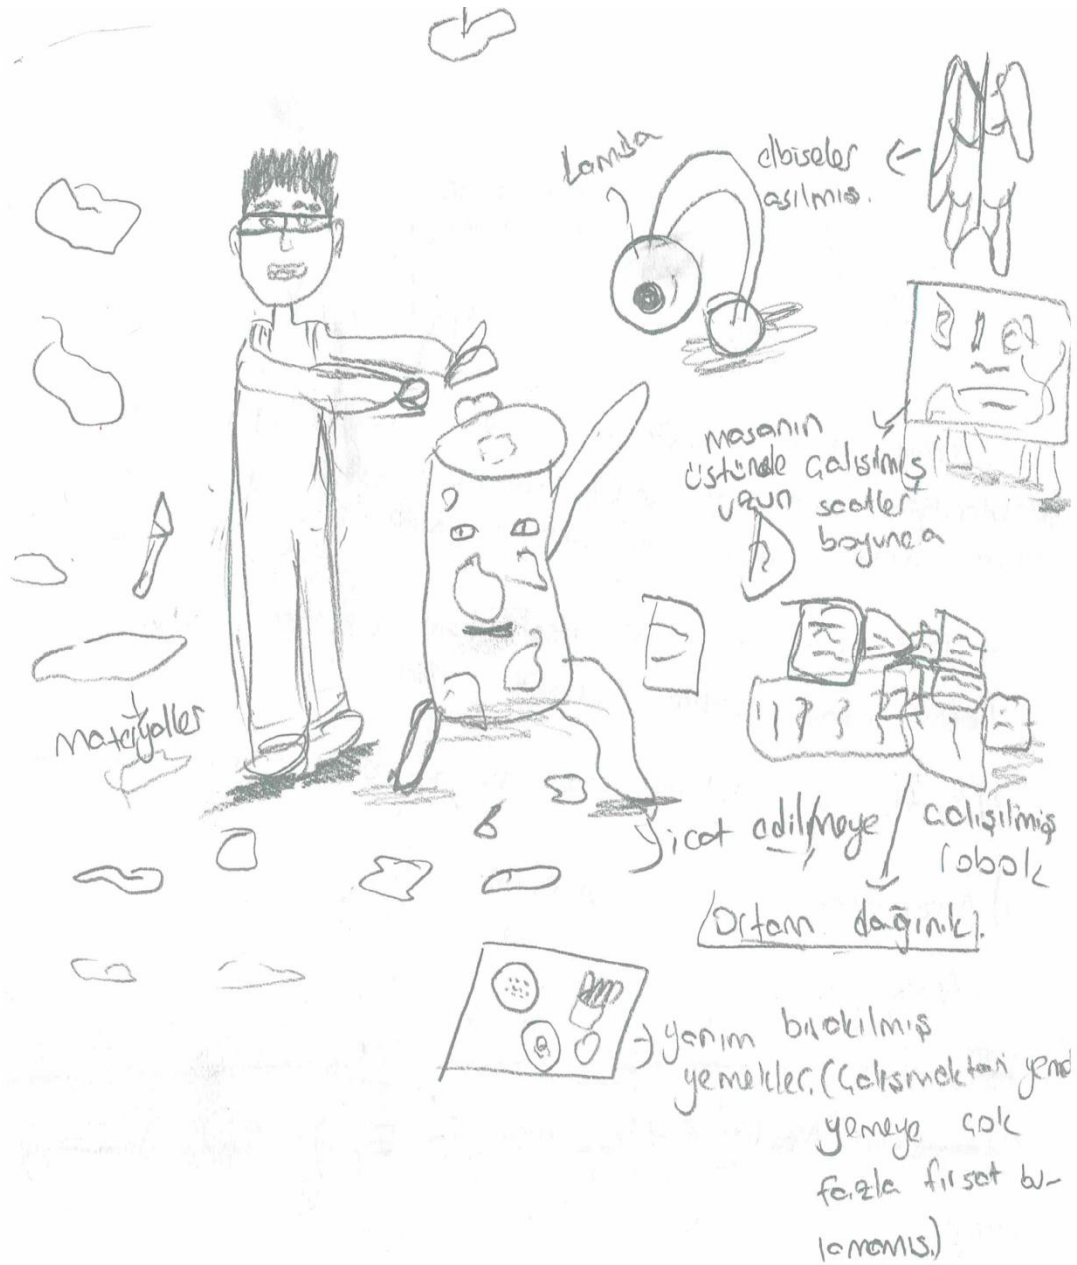 Lamba
elbiseler
asılmış.
masanın
üstünde çalışılmış
uzun saatler
boyunca
materyaller
icat edilmeye çalışılmış
robot
Ortam dağınık.
yarım bırakılmış
yemekler. (Çalışmaktan
yemeye çok
fazla fırsat bu-
lamamış.)